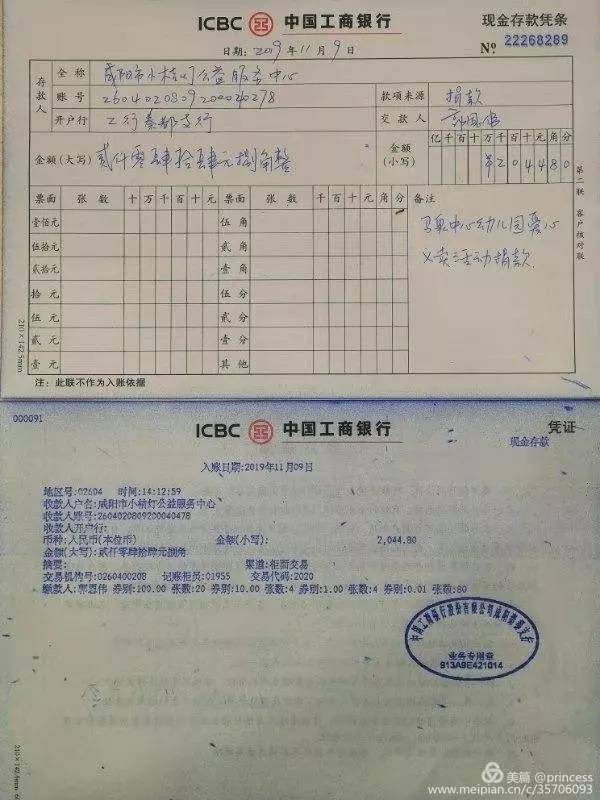 ICBC 中国工商银行
现金存款凭条
日期: 2019年11月9日
№ 22268289
存款人
全称 咸阳市小桔灯公益服务中心
账号 2604020809200040478
开户行 工行秦都支行
款项来源 捐款
交款人
金额(大写) 贰仟零肆拾肆元捌角整
金额(小写)
亿千百十万千百十元角分
¥204480
票面 张数 十万千百十元 票面 张数 千百十元角分 备注
壹佰元 伍角
伍拾元 贰角
贰拾元 壹角
拾元 伍分
伍元 贰分
贰元 壹分
壹元 其他
马泉中心幼儿园爱心
义卖活动捐款
第二联 客户核对联
210×142.5mm
注:此联不作为入账依据
000091
ICBC 中国工商银行
凭证
现金存款
入账日期:2019年11月09日
地区号:02604 时间:14:12:59
收款人户名:咸阳市小桔灯公益服务中心
收款人账号:2604020809200040478
收款人开户行:
币种:人民币(本位币) 金额(小写): 2,044.80
金额(大写):贰仟零肆拾肆元捌角
摘要: 渠道:柜面交易
交易机构号:0260400208 记账柜员:01955 交易代码:2020
缴款人:郭恩伟 券别:100.00 张数:20 券别:10.00 张数:4 券别:1.00 张数:4 券别:0.01 张数:80
业务专用章
913A9E421014
美篇 @princess
www.meipian.cn/c/35706093